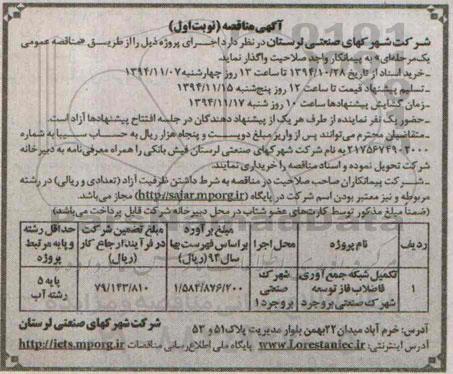 آگهی مناقصه (نوبت اول)
شرکت شهرکهای صنعتی لرستان در نظر دارد اجرای پروژه ذیل را از طریق «مناقصه عمومی
یک مرحله‌ای» به پیمانکار واجد صلاحیت واگذار نماید.
- خرید اسناد از تاریخ ۱۳۹۴/۱۰/۲۸ تا ساعت ۱۳ روز چهارشنبه ۱۳۹۴/۱۱/۰۷
- تسلیم پیشنهاد قیمت تا ساعت ۱۳ روز پنج‌شنبه ۱۳۹۴/۱۱/۱۵
- زمان گشایش پیشنهادها ساعت ۱۰ روز شنبه ۱۳۹۴/۱۱/۱۷
- حضور یک نفر نماینده از طرف هر یک از پیشنهاد دهندگان در جلسه افتتاح پیشنهادها آزاد است.
- متقاضیان محترم می‌توانند پس از واریز مبلغ دویست و پنجاه هزار ریال به حساب سیبا به شماره
۲۱۷۵۶۷۴۹۰۲۰۰۰ به نام شرکت شهرکهای صنعتی لرستان فیش بانکی را همراه معرفی‌نامه به دبیرخانه
شرکت تحویل نموده و اسناد مناقصه را خریداری نمایند.
- شرکت پیمانکاران صاحب صلاحیت در مناقصه به شرط داشتن ظرفیت آزاد (تعدادی و ریالی) در رشته
مربوطه و نیز معتبر بودن اسم شرکت در پایگاه (http://sajar.mporg.ir) مجاز می‌باشد.
(ضمناً مبلغ مذکور توسط کارت‌های عضو شتاب در محل دبیرخانه شرکت قابل پرداخت می‌باشد)
ردیف | نام پروژه | محل اجرا | مبلغ برآورد براساس فهرست بها سال ۹۴ (ریال) | مبلغ تضمین شرکت در فرآیند ارجاع کار (ریال) | حداقل رشته و پایه مرتبط پروژه
۱ | تکمیل شبکه جمع آوری فاضلاب فاز توسعه شهرک صنعتی بروجرد | شهرک صنعتی بروجرد ۱ | ۱/۵۸۲/۸۷۶/۲۰۰ | ۷۹/۱۴۳/۸۱۰ | پایه ۵ رشته آب
آدرس: خرم آباد میدان ۲۲ بهمن بلوار مدیریت پلاک ۵۱ و ۵۳ شرکت شهرکهای صنعتی لرستان
آدرس اینترنتی: www.Lorestaniec.ir پایگاه ملی اطلاع‌رسانی مناقصات http://iets.mporg.ir